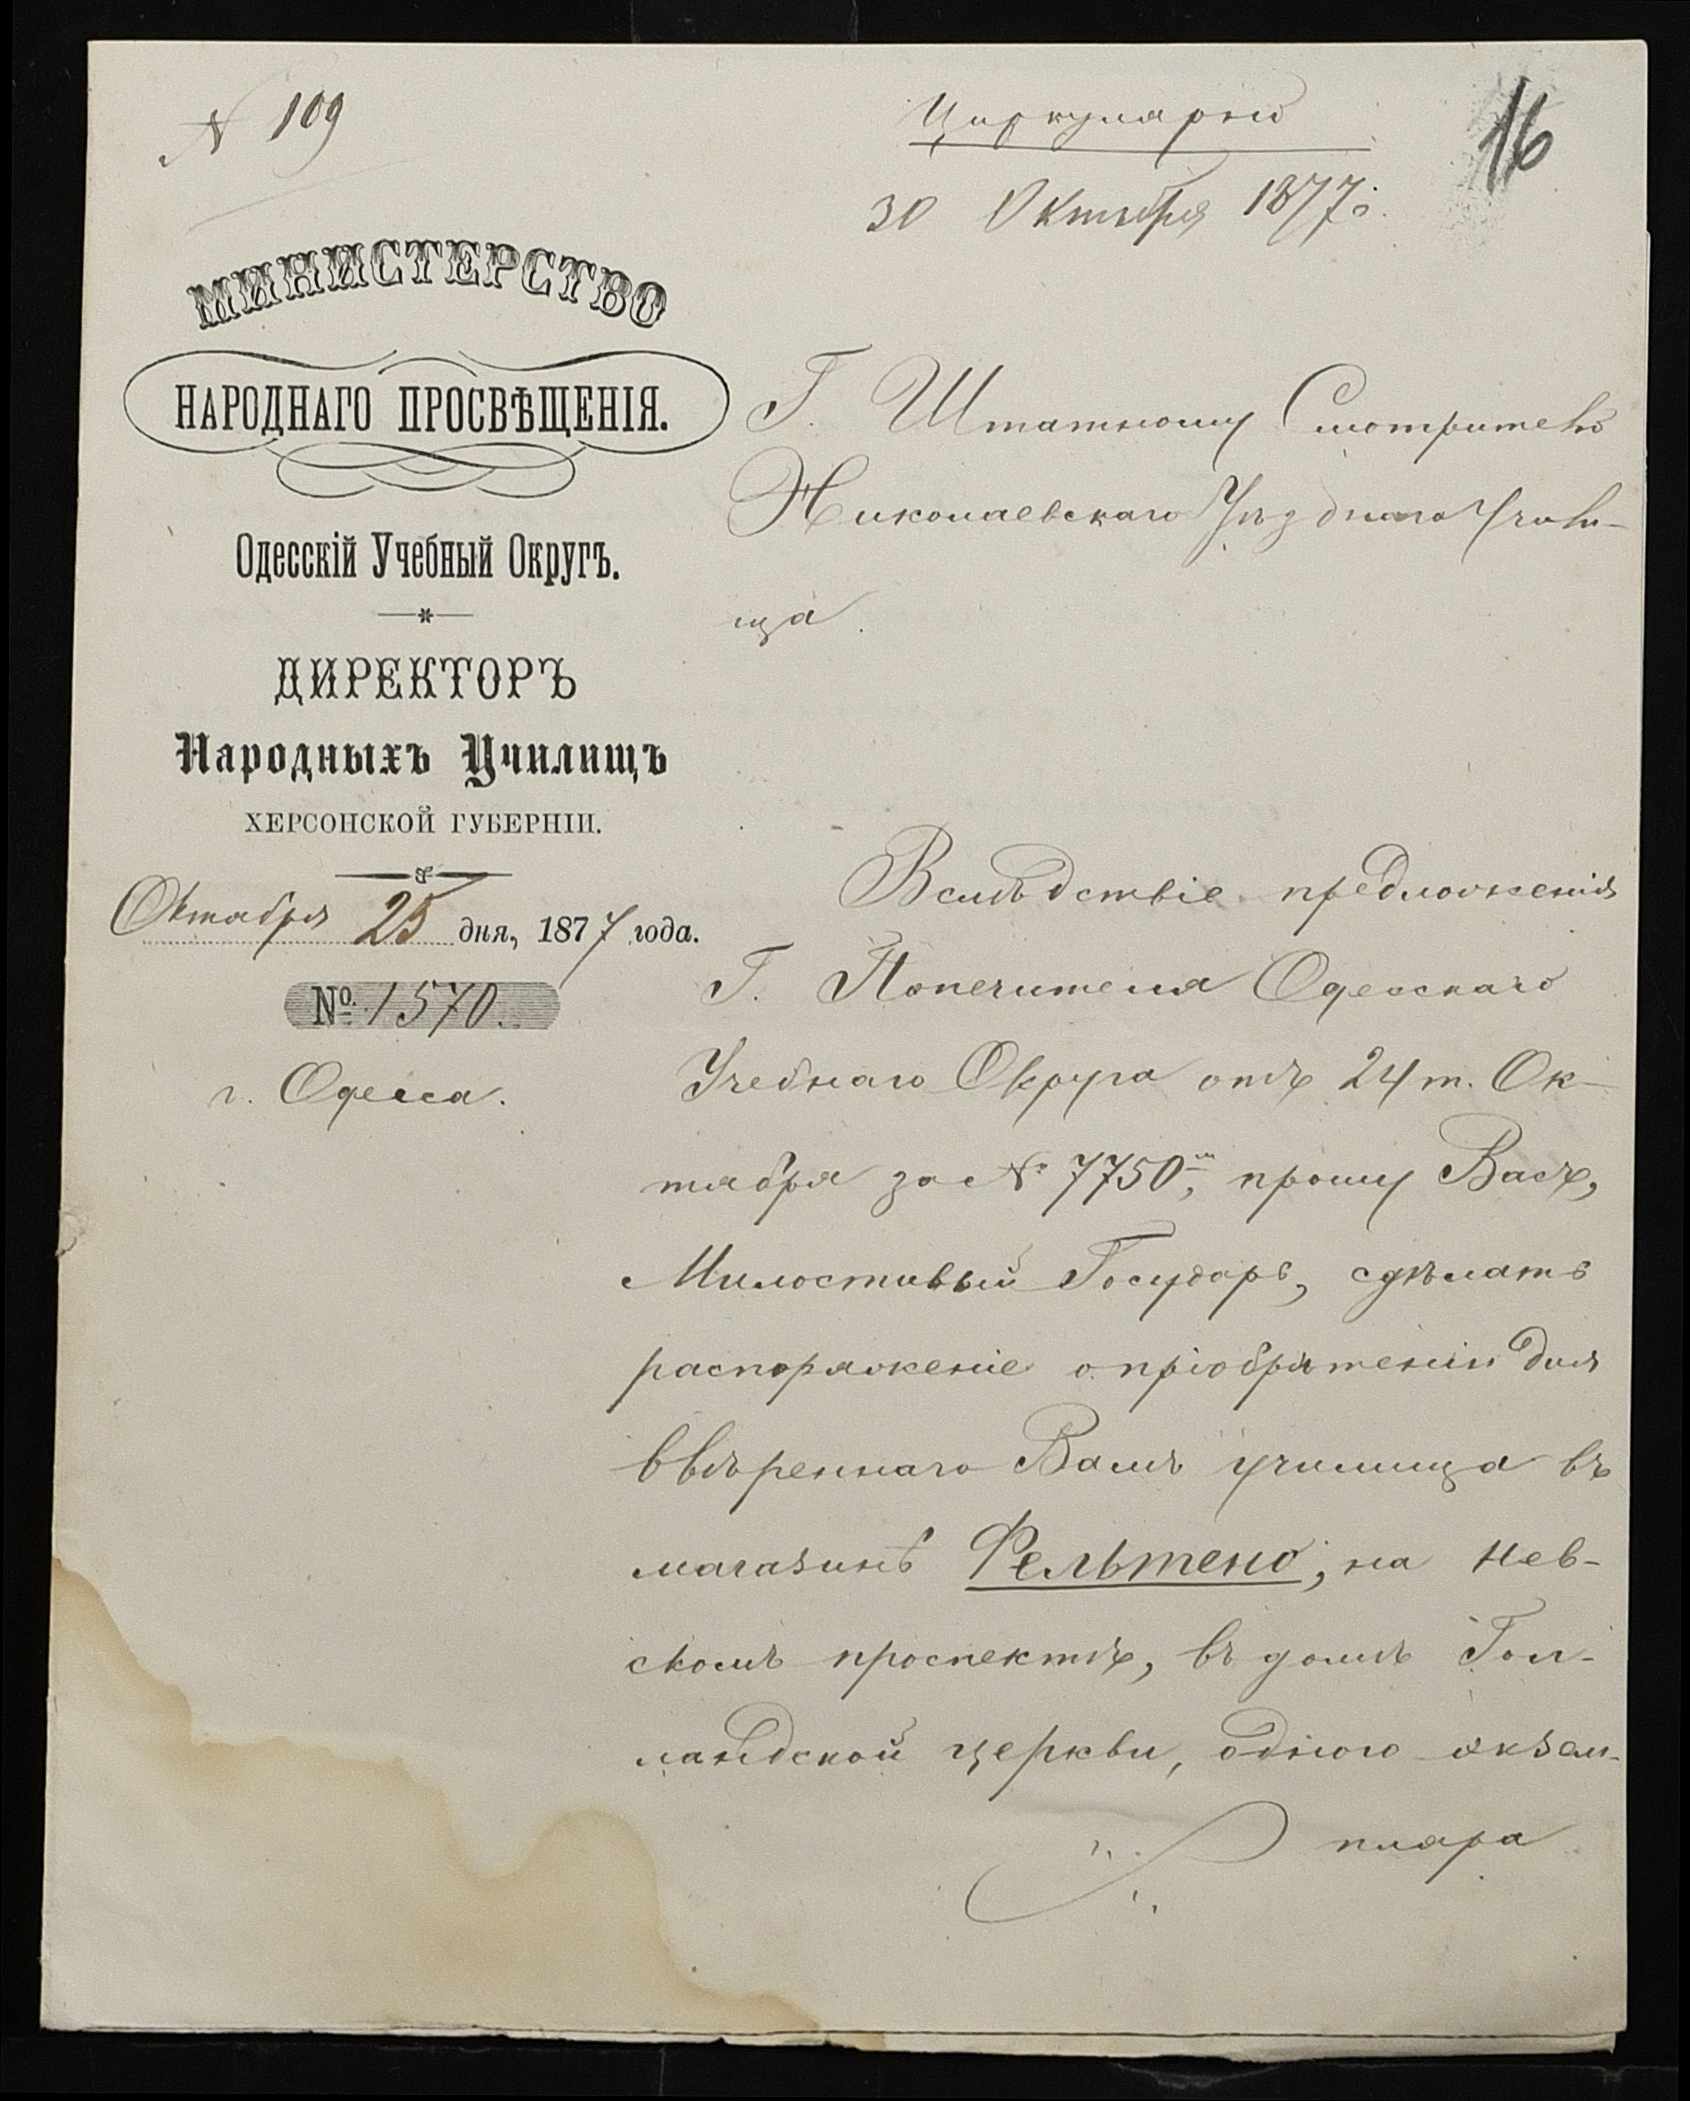 № 109
Циркулярно
16
30 Октября 1877 г.
МИНИСТЕРСТВО
НАРОДНАГО ПРОСВѢЩЕНІЯ.
Одесскій Учебный Округъ.
ДИРЕКТОРЪ
Народныхъ Училищъ
ХЕРСОНСКОЙ ГУБЕРНІИ.
Октября 25 дня, 1877 года.
№ 1570.
г. Одесса.
Г. Штатному Смотрителю
Николаевскаго Уѣзднаго Учили-
ща.
Вслѣдствіе предложенія
Г. Попечителя Одесскаго
Учебнаго Округа отъ 24 т. Ок-
тября за № 7750, прошу Васъ,
Милостивый Государь, сдѣлать
распоряженіе о пріобрѣтеніи для
ввѣреннаго Вамъ училища въ
магазинѣ Фельтено, на Нев-
скомъ проспектѣ, въ домѣ Гол-
ландской церкви, одного экзем-
пляра